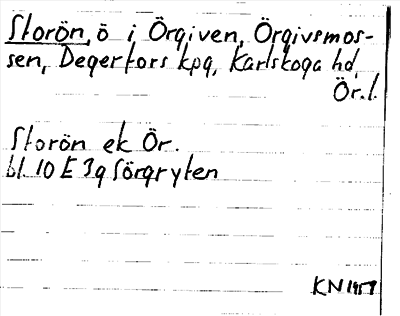 Storön, ö i Örgiven, Örgivsmos-
sen, Degerfors kpg, Karlskoga hd,
Ör. l.
Storön ek Ör.
bl. 10 E 3g Sörgryten
KN 1959